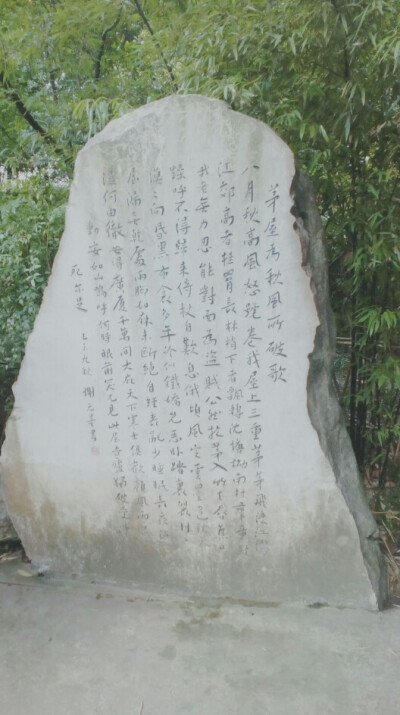 茅屋為秋风所破歌
八月秋高風怒號卷我屋上三重茅茅飛渡江洒
江郊高者挂罥長林梢下者飄轉沉塘坳南村羣童欺
我老無力忍能對面為盗賊公然抱茅入竹去唇焦口
燥呼不得歸来倚杖自歎息俄頃風定雲墨色秋
漠向昏黑布衾多年冷似鐵嬌兒惡卧踏裏裂床
屋漏無乾處雨脚如麻未斷絶自經喪亂少睡眠長夜沾
濕何由徹安得廣厦千萬間大庇天下寒士俱歡顔風雨不
動安如山嗚呼何時眼前突兀見此屋吾廬獨破受凍
死亦足
九秋 謝 書